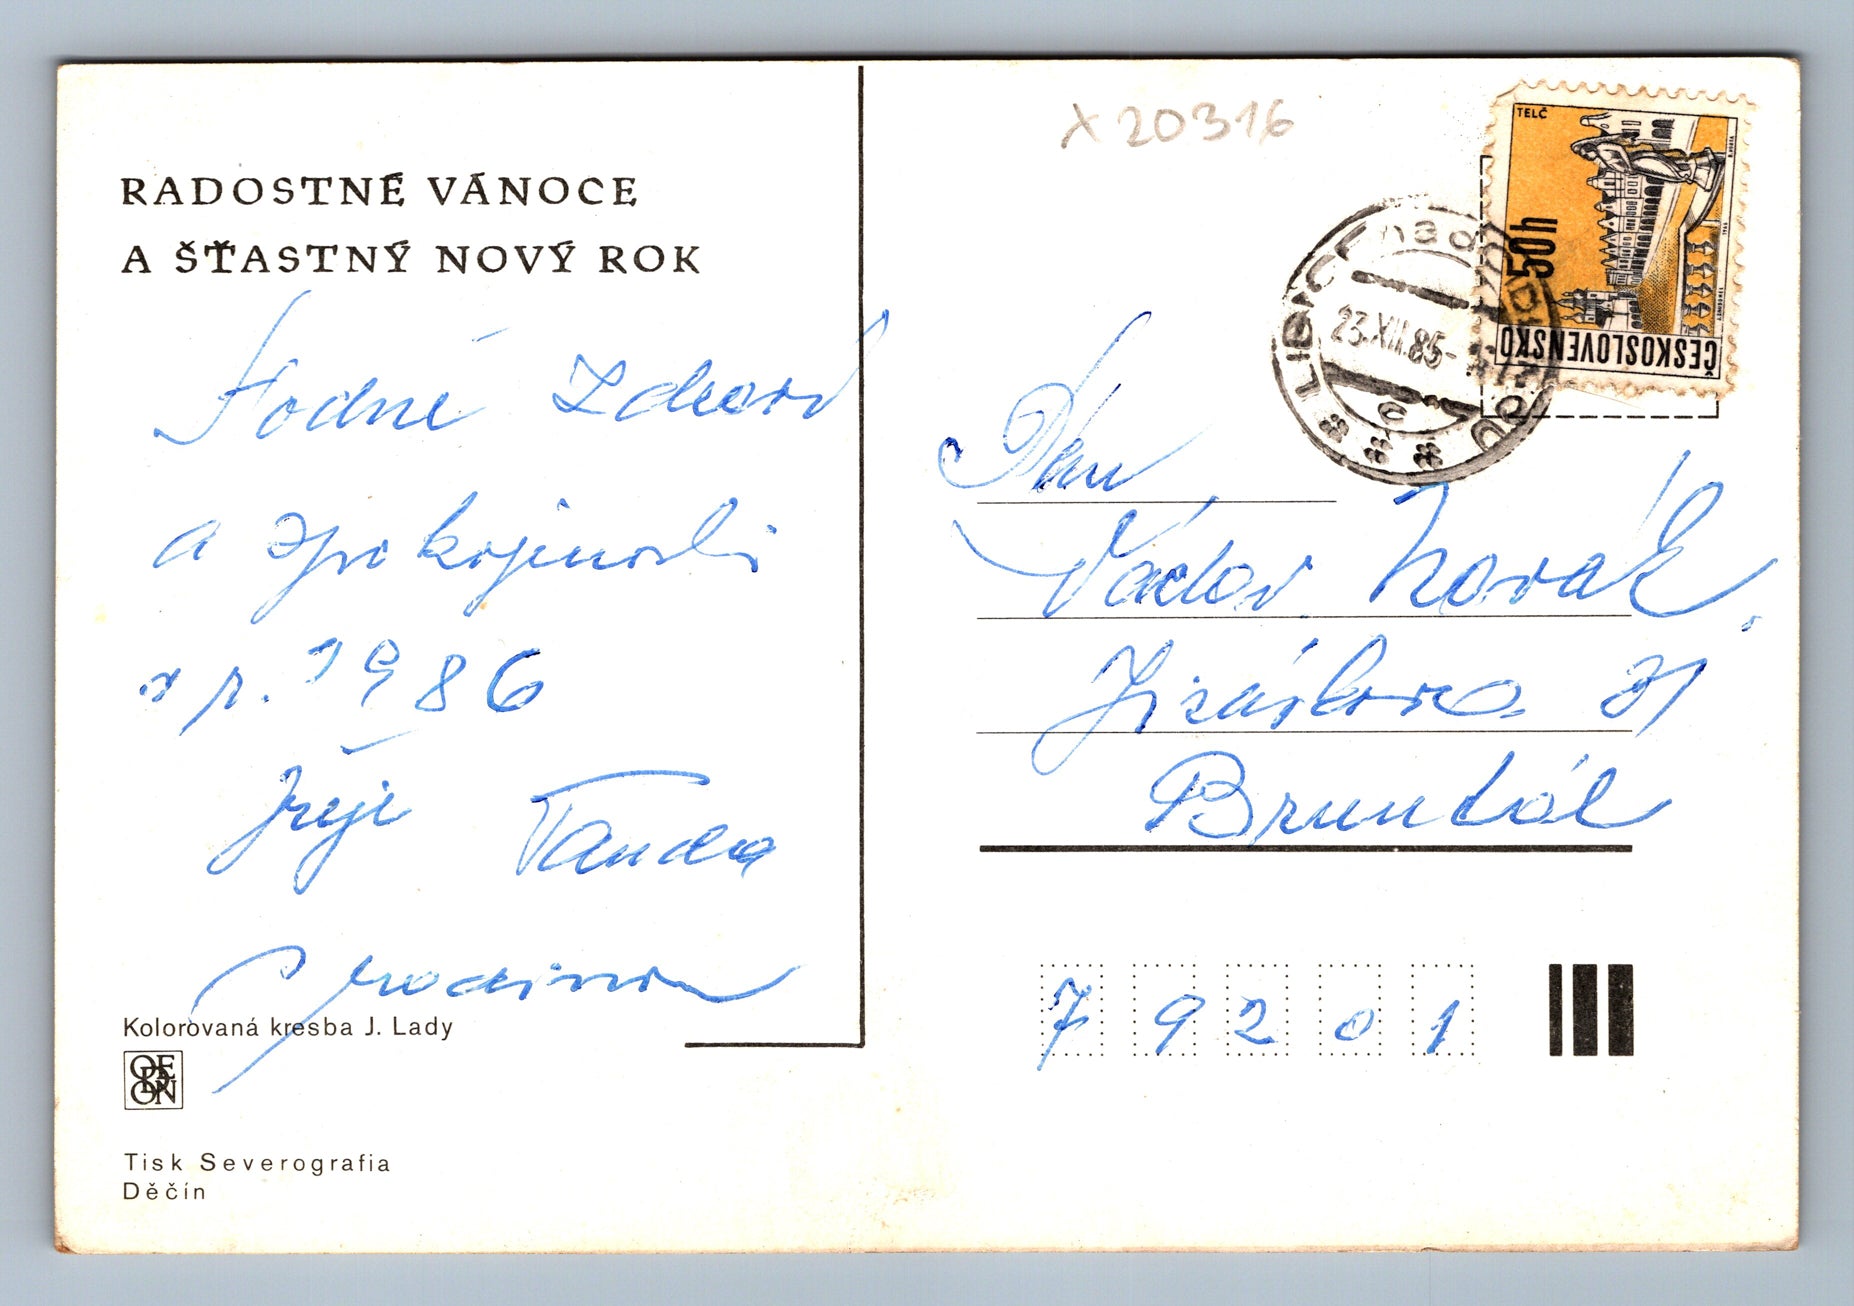 RADOSTNÉ VÁNOCE
A ŠŤASTNÝ NOVÝ ROK
hodně zdraví
a spokojenosti
v r. 1986
přeje Vanda
s rodinou
Kolorovaná kresba J. Lady
ODEON
Tisk Severografia
Děčín
x 20316
TELČ
50h
ČESKOSLOVENSKO
23.XII.85-
c
Pan
Václav Novák
Jiráskova 31
Bruntál
79201